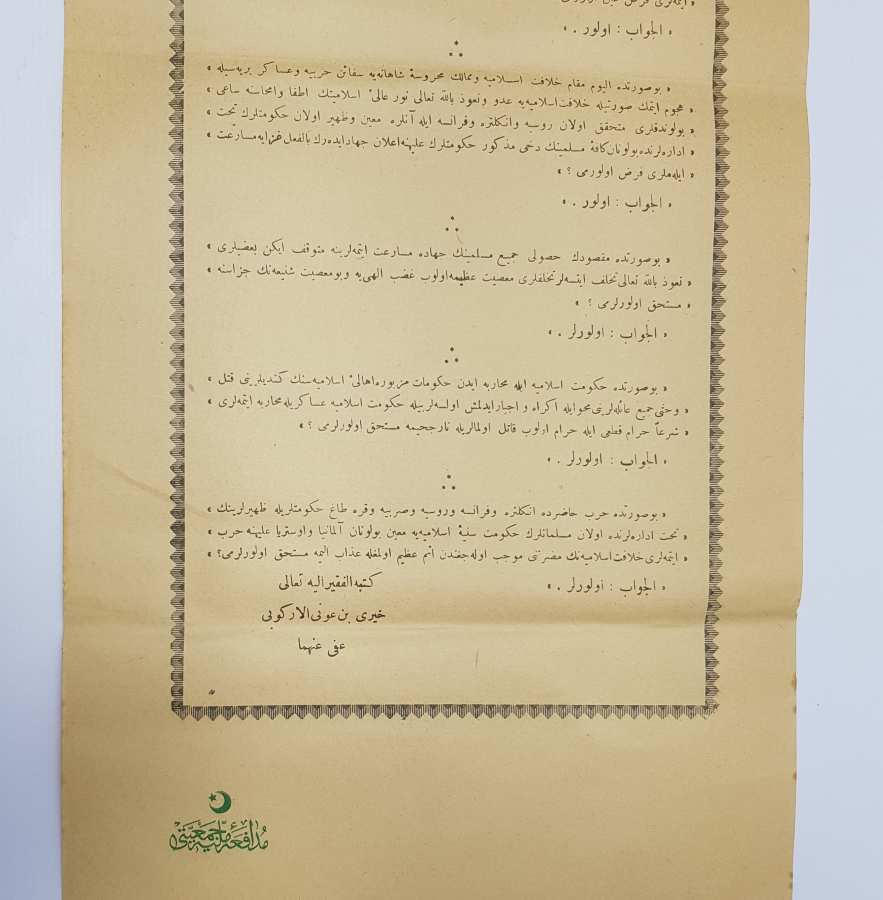 ایتمه‌لری فرض عین اولورمی
« الجواب : اولور . »
« بوصورتده الیوم مقام خلافت اسلامیه وممالك محروسهٔ شاهانه‌یه سفائن حربیه وعساكر بریه‌سیله »
« هجوم ایتمك صورتیله خلافت‌اسلامیه‌یه عدو ونعوذ بالله تعالی نور عالیٔ اسلامیتك اطفا وامحاسنه ساعی »
« بولوندقلری متحقق اولان روسیه وانكلتره وفرانسه ایله آنلره معین وظهیر اولان حكومتلرك تحت »
« اداره‌لرنده‌بولونان‌كافهٔ مسلمینك دخی مذكور حكومتلرك علیهنه‌اعلان جهادایده‌رك‌بالفعل‌غزایه‌مسارعت »
« ایله‌ملری فرض اولورمی ؟ »
« الجواب : اولور . »
« بوصورتده مقصودك حصولی جمیع مسلمینك جهاده مسارعت ایتمه‌لرینه متوقف ایكن بعضیلری »
« نعوذ بالله تعالی‌تخلف ایتسه‌لرتخلفلری معصیت عظیمه‌اولوب غضب الهی‌یه وبومعصیت شنیعه‌نك جزاسنه »
« مستحق اولورلرمی ؟ »
« الجواب : اولورلر . »
« بوصورتده حكومت اسلامیه ایله محاربه ایدن حكومات مزبوره‌اهالیٔ اسلامیه‌سنك كندیلرینی قتل »
« وحتی‌جمیع عائله‌لرینی‌محوایله اكراه و اجبارایدلمش اولسه‌لربیله حكومت اسلامیه عساكریله‌محاربه ایتمه‌لری »
« شرعاً حرام قطعی ایله حرام اولوب قاتل اولمالریله نارجحیمه مستحق اولورلرمی ؟ »
« الجواب : اولورلر . »
« بوصورتده حرب حاضرده انكلتره وفرانسه وروسیه وصربیه وقره طاغ حكومتلریله ظهیرلرینك »
« تحت اداره‌لرنده اولان مسلمانلرك حكومت سنیهٔ اسلامیه‌یه معین بولونان آلمانیا واوستریا علیهنه حرب »
« ایتمه‌لری خلافت‌اسلامیه‌نك مضرتنی موجب اوله‌جغندن اثم عظیم اولمغله عذاب الیمه مستحق اولورلرمی؟ »
« الجواب : اولورلر . »
كتبه‌الفقیرالیه تعالی
خیری بن‌عونی‌الاركوبی
عفی عنهما
مُدافعهٔ ملّیه جمعیّتی